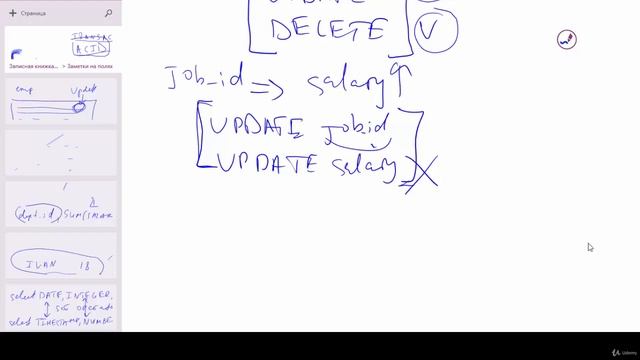 Страница
TRANSAC
ACID
Записная книжка... > Заметки на полях
emp Update
dept_id SUM(SALAR
IVAN 18
select DATE, INTEGER,
select TIMESTAMP, NUMBE
UPDATE
DELETE V
Job_id => salary↑
UPDATE job_id
UPDATE salary
Udemy